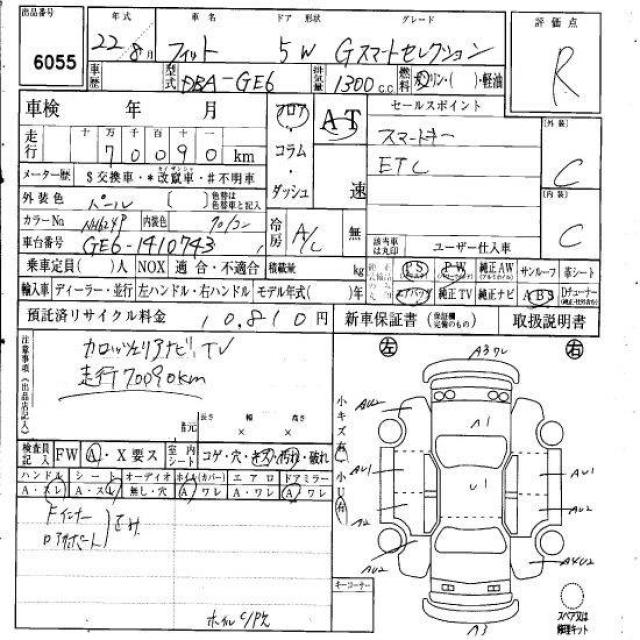 出品番号 年式 車名 ドア 形状 グレード 評価点
6055 22年 8月 フィット 5W Gスマートセレクション R
車歴 型式 DBA-GE6 排気量 1300c.c. 燃料 ガソリン・( )・軽油
車検 年 月 フロア AT セールスポイント 外装
走行 十万千百十一 コラム スマートキー C
70090km ETC
メーター歴 $交換車・*改竄車・#不明車 ダッシュ 速 内装
外装色 パール ( ) 色替は色替車と記入 C
カラーNo NH624P 内装色 クロ/コン 冷房 A/C 無
車台番号 GE6-1410743 該当車は丸印 ユーザー仕入車
乗車定員( )人 NOX 適合・不適合 積載量 kg PS PW 純正AW サンルーフ 革シート
輸入車 ディーラー・並行 左ハンドル・右ハンドル モデル年式( )年 エアバッグ 純正TV 純正ナビ ABS Dチューナー
預託済リサイクル料金 10,810円 新車保証書 (保証欄完備のもの) 取扱説明書
注意事項(出品店記入) 左 A3ワレ 右
カロッツェリアナビTV
走行70090km
小キズ有 小U有
荷元 長さ × 幅 × 高さ
検査員記入 FW A・X要ス 室内シート コゲ・穴・キズ・汚れ・破れ
ハンドル シート オーディオ ホイル(カバー) エアロ ドアミラー
A・スレ A・スレ 無し・穴 A・ワレ A・ワレ A・ワレ
Fインナー
ホイルC/P欠
AU2 A1
AU1 U1 AU1
A2 AU2
AU2 A4U2
A3
キーコーナー
スペア又は修理キット